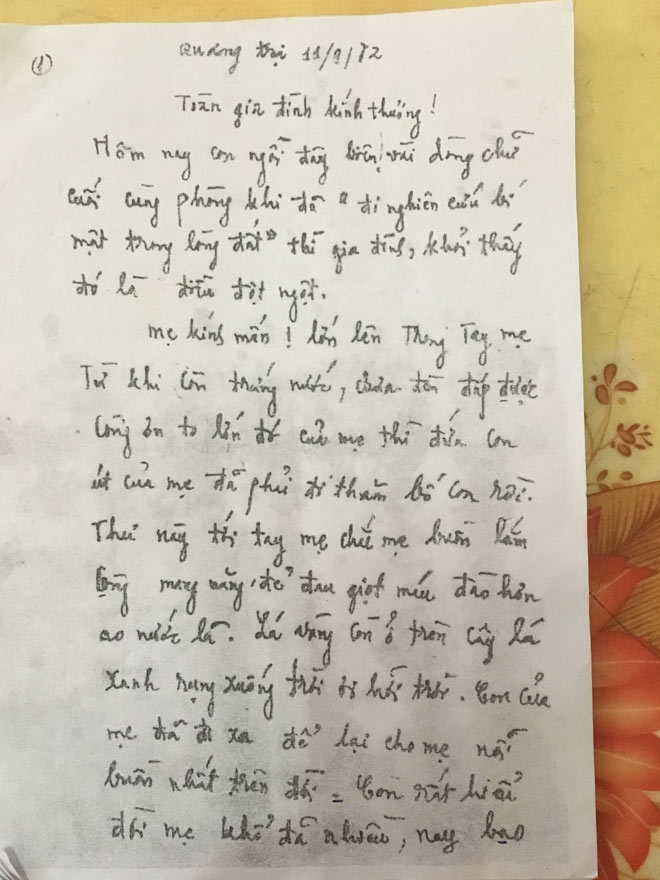 (1)
Quảng trị 11/9/72
Toàn gia đình kính thương!
Hôm nay con ngồi đây biên vài dòng chữ
cuối cùng phòng khi đã "đi nghiên cứu bí
mật trong lòng đất" thì gia đình, khỏi thấy
đó là điều đột ngột.
Mẹ kính mến! lớn lên Trong Tay mẹ
Từ khi còn trứng nước, chưa đền đáp được
Công ơn to lớn đó của mẹ thì đứa con
út của mẹ đã phải đi thăm bố con rồi.
Thư này tới tay mẹ chắc mẹ buồn lắm
Công mang nặng đẻ đau giọt máu đào hơn
ao nước lã. Lá vàng còn ở trên cây lá
xanh rụng xuống trời ơi hỡi trời. Con của
mẹ đã đi xa để lại cho mẹ nỗi
buồn nhất trên đời. Con rất hiểu
đời mẹ khổ đã nhiều, nay bao